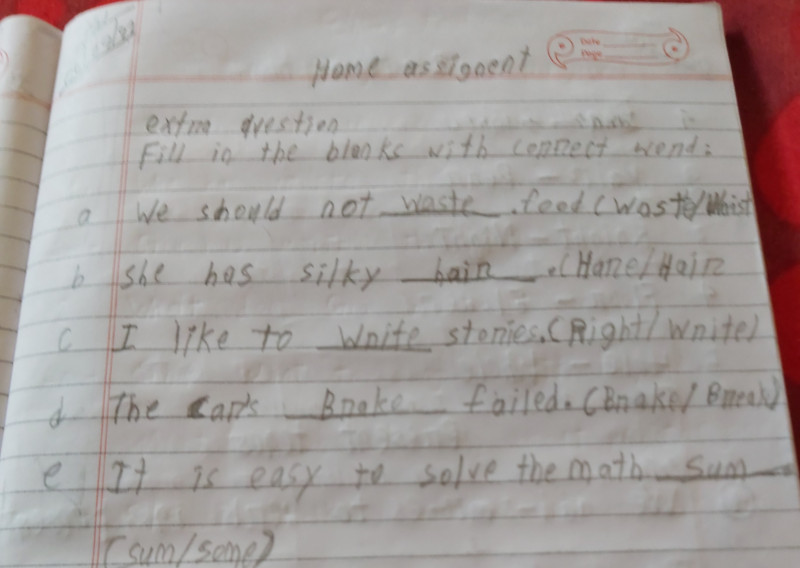 Home assignent
Date
Page
extra question
Fill in the blanks with connect word:
a We should not waste . food (Waste/Waist
b she has silky hair . (Hare/Hair
c I like to Write stories. (Right/Write)
d The car's Brake failed. (Brake/Break)
e It is easy to solve the math sum
(sum/some)